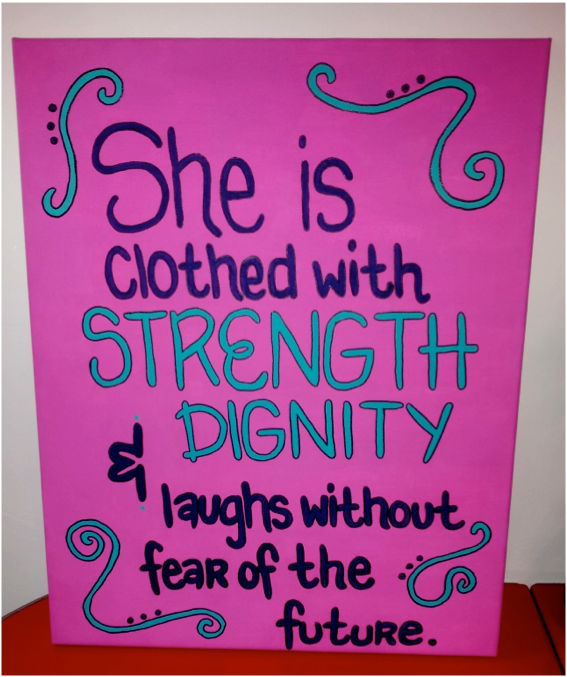 She is
clothed with
STRENGTH
& DIGNITY
laughs without
feaR of the
futuRe.